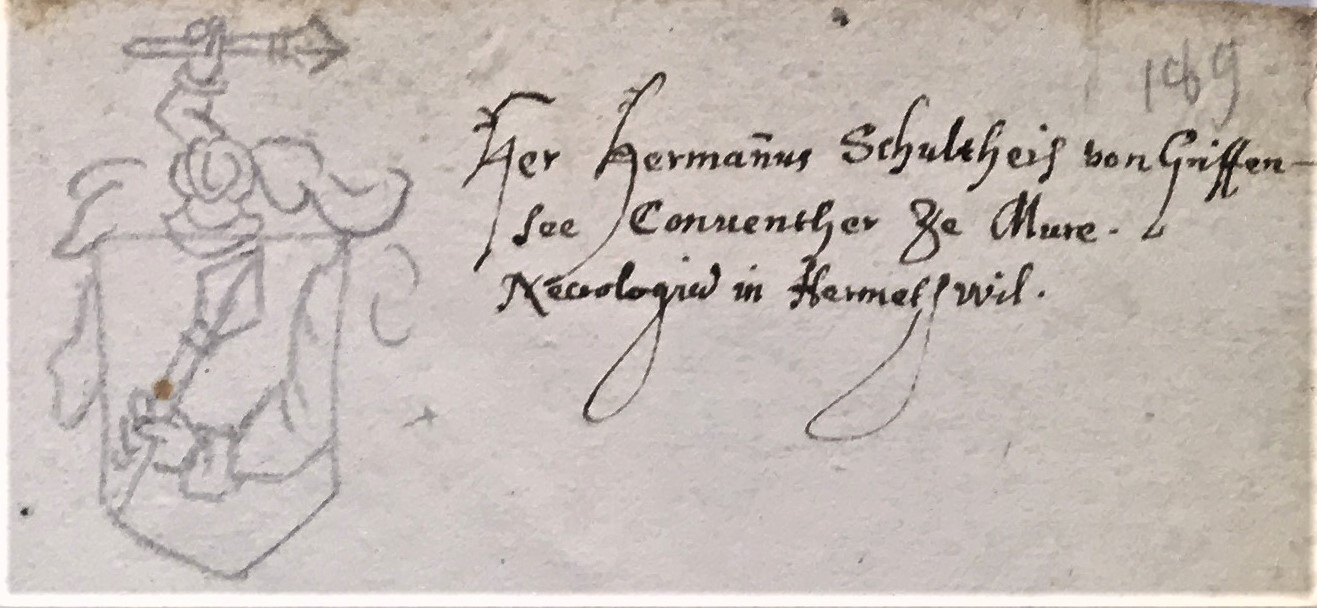 189
Her Hermañus Schultheis von Griffen-
see Conuenther Ze Mure.
in Hermetswil.